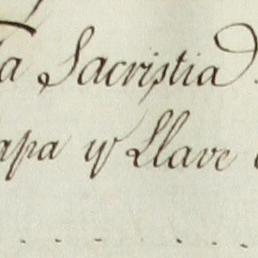 la Sacristia
apa y Llave